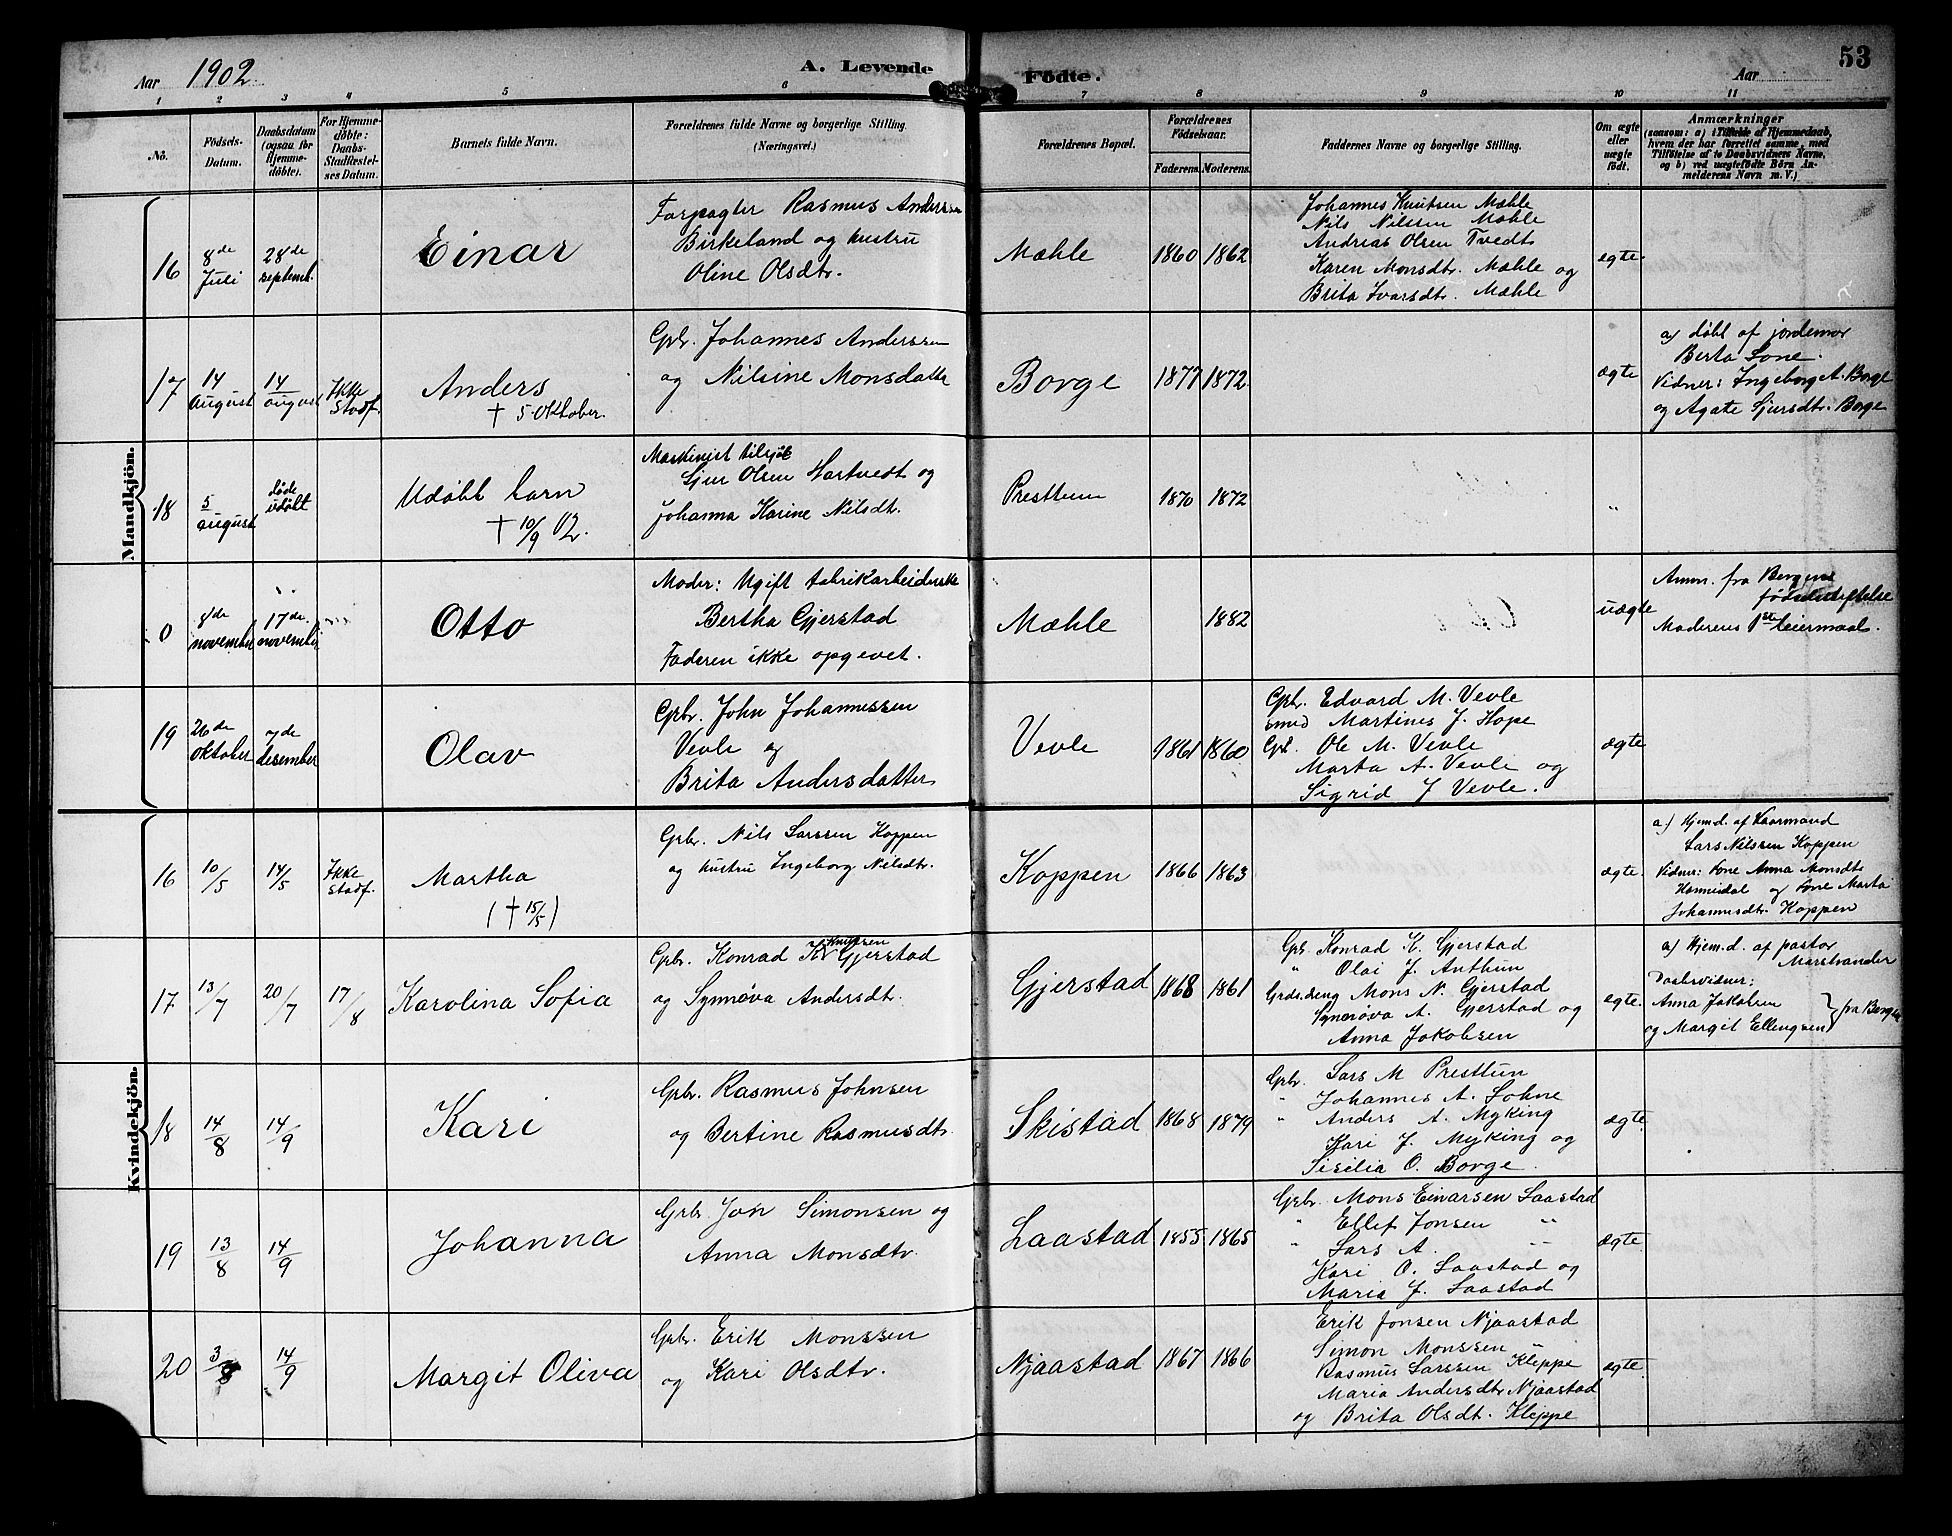 Aar 1902.
A. Levende Födte.
Aar
53
1 2 3 4 5 6 7 8 9 10 11
No.
Födsels-Datum.
Daabsdatum (ogsaa for Hjemme-döbte).
For Hjemme-döbte: Daabs-Stadfæstel-ses Datum.
Barnets fulde Navn.
Forældrenes fulde Navne og borgerlige Stilling.
(Næringsvei.)
Forældrenes Bopæl.
Forældrenes Födselsaar.
Faderens. Moderens.
Faddernes Navne og borgerlige Stilling.
Om ægte eller uægte födt.
Anmærkninger
(saasom: a) i Tilfælde af Hjemmedaab,
hvem der har forrettet samme, med
Tilföielse af to Daabsvidners Navne,
og b) ved uægtefödte Börn An-
melderens Navn m. V.)
Mandkjön.
16
8de Juli
28de septemb.
Einar
Forpagter Rasmus Anderssen
Birkeland og hustru
Oline Olsdtr.
Mæhle
1860 1862
Johannes Knutsen Mæhle
Nils Nilssen Mæhle
Andreas Olsen Tvedt
Karen Monsdtr. Mæhle og
Brita Ivarsdtr. Mæhle
ægte
17
14 august
14 august
Ikke stadf.
Anders
† 5 Oktober.
Gbr. Johannes Anderssen
og Nilsine Monsdatter
Borge
1877 1872
ægte
a) døbt af jordemor
Berta Lone.
Vidner: Ingeborg A. Borge
og Agate Sjursdtr. Borge
18
5 august
døde udøbt
Udøbt barn
† 10/9 02.
Maskinist tilsjøs
Sjur Olsen Hartvedt og
Johanna Karine Nilsdt.
Presttun
1870 1872
"
0
8de november
17de november
Otto
Moder: Ugift fabrikarbeiderske
Bertha Gjerstad
Faderen ikke opgevet.
Mæhle
1882
uægte
Anm. fra Bergens
fødselsstiftelse
Moderens 1ste leiermaal.
19
26de Oktober
7de desember
Olav
Gbr. John Johannessen
Vevle og
Brita Andersdatter
Vevle
1861 1860
Gbr. Edvard M. Vevle
smed Martines J. Hope
Gbr. Ole M. Vevle
Marta A. Vevle og
Sigrid J Vevle.
ægte
Kvindekjön.
16
10/5
14/5
Ikke stadf.
Martha
(† 15/5)
Gbr. Nils Larssen Koppen
og hustru Ingeborg Nilsdtr.
Koppen
1866 1863
ægte
a) Hjemd. af Kaarmand
Lars Nilssen Koppen
Vidner: Kone Anna Monsdtr
Hannisdal og Kone Marta
Johannesdtr. Koppen
17
13/7
20/7
17/8
Karolina Sofia
Knutsen
Gbr. Konrad K. Gjerstad
og Synnøva Andersdt.
Gjerstad
1868 1861
Gbr Konrad K. Gjerstad
" Olai J. Anthun
Grdsdreng Mons N. Gjerstad
Synnøva A. Gjerstad og
Anna Jakobsen
ægte.
a) Hjem.d. af pastor
Marstrander
Daabsvidner:
Anna Jakobsen
og Margit Ellengsen } fra Bergen
18
14/8
14/9
Kari
Gbr. Rasmus Johnsen
og Bertine Rasmusdtr.
Skistad
1868 1879
Gbr. Lars M Presttun
" Johannes A. Lohne
" Anders A. Myking
Kari J. Myking og
Sisilia O. Borge.
ægte
19
13/8
14/9
Johanna
Grbr. Jon Simonsen og
Anna Monsdtr.
Laastad
1855 1865
Grbr. Mons Einarsen Laastad
" Ellef Jonsen "
" Lars A. "
Kari O. Laastad og
Maria J. Laastad
ægte.
20
3/8
14/9
Margit Oliva
Grbr. Erik Monssen
og Kari Olsdtr.
Njaastad
1867 1866
Erik Jonsen Njaastad
Simon Monssen "
Rasmus Larssen Kleppe
Maria Andersdtr Njaastad
og Brita Olsdt. Kleppe
ægte.